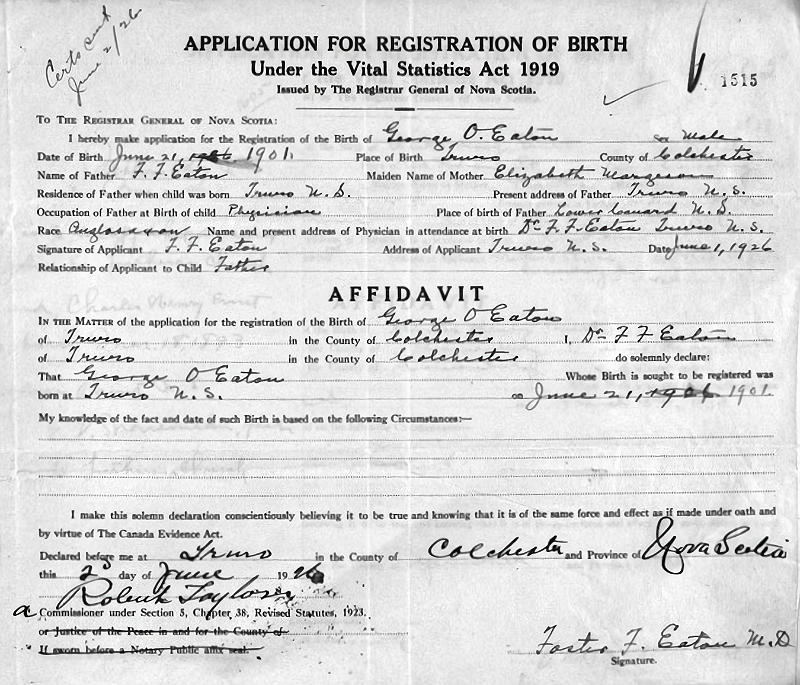 Certs sent
June 2/26
APPLICATION FOR REGISTRATION OF BIRTH
Under the Vital Statistics Act 1919
Issued by The Registrar General of Nova Scotia.
1515
TO THE REGISTRAR GENERAL OF NOVA SCOTIA:
I hereby make application for the Registration of the Birth of George O. Eaton Sex Male
Date of Birth June 21, 1906 1901. Place of Birth Truro County of Colchester
Name of Father F. F. Eaton Maiden Name of Mother Elizabeth Margeson
Residence of Father when child was born Truro N. S. Present address of Father Truro N. S.
Occupation of Father at Birth of child Physician Place of birth of Father Lower Canard N. S.
Race Anglosaxon Name and present address of Physician in attendance at birth Dr F. F. Eaton Truro N. S.
Signature of Applicant F. F. Eaton Address of Applicant Truro N. S. Date June 1, 1926
Relationship of Applicant to Child Father
AFFIDAVIT
IN THE MATTER of the application for the registration of the Birth of George O Eaton
of Truro in the County of Colchester I, Dr F F Eaton
of Truro in the County of Colchester do solemnly declare:
That George O Eaton Whose Birth is sought to be registered was
born at Truro N. S. on June 21, 1906 1901.
My knowledge of the fact and date of such Birth is based on the following Circumstances:—
I make this solemn declaration conscientiously believing it to be true and knowing that it is of the same force and effect as if made under oath and
by virtue of The Canada Evidence Act.
Declared before me at Truro in the County of Colchester and Province of Nova Scotia
this 2d day of June 1926
Robert Taylor
a Commissioner under Section 5, Chapter 38, Revised Statutes, 1923.
or Justice of the Peace in and for the County of
If sworn before a Notary Public affix seal.
Foster F. Eaton M.D
Signature.